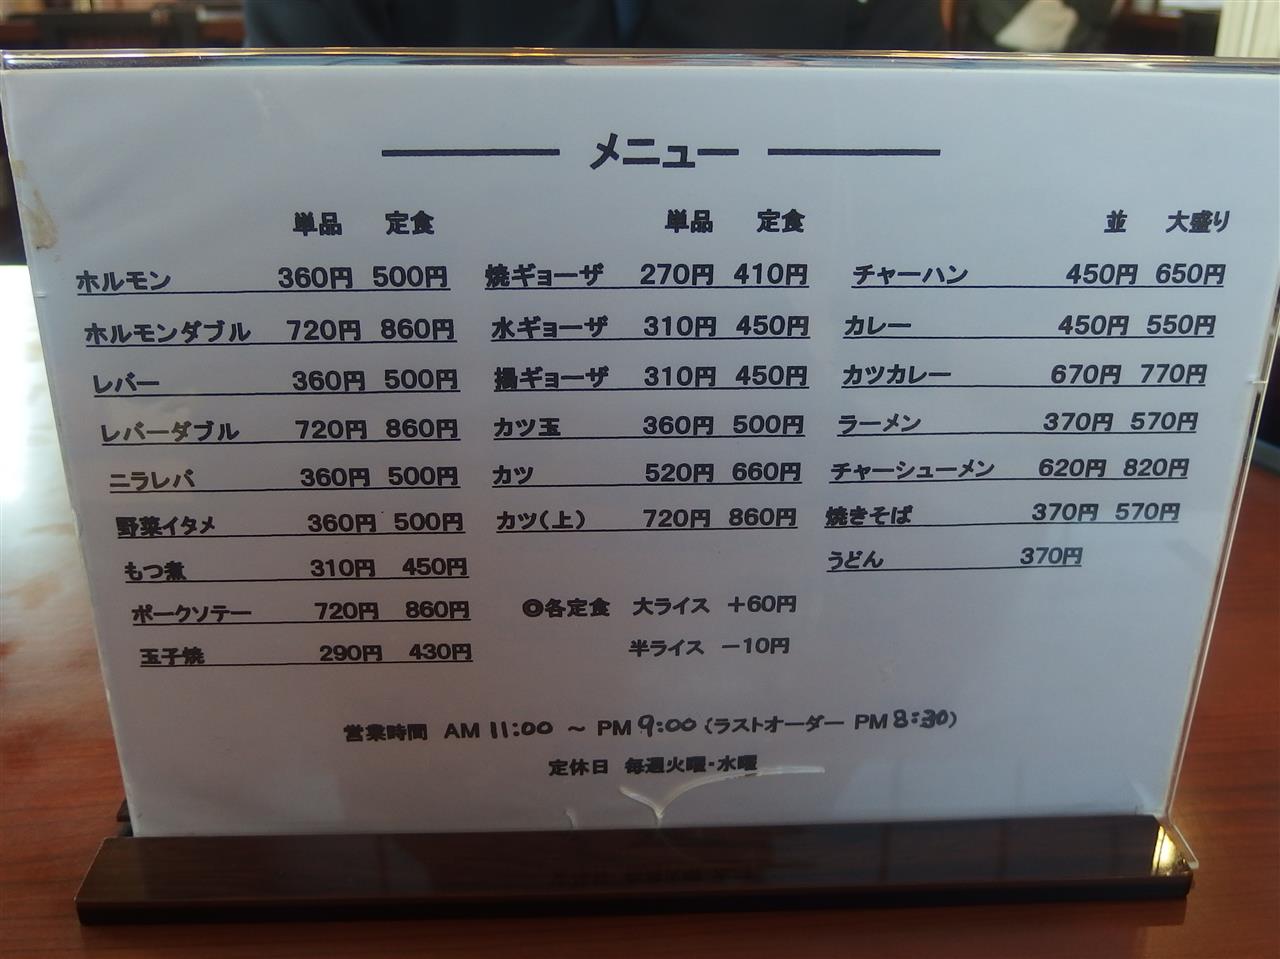 メニュー
単品 定食
ホルモン 360円 500円
ホルモンダブル 720円 860円
レバー 360円 500円
レバーダブル 720円 860円
ニラレバ 360円 500円
野菜イタメ 360円 500円
もつ煮 310円 450円
ポークソテー 720円 860円
玉子焼 290円 430円
単品 定食
焼ギョーザ 270円 410円
水ギョーザ 310円 450円
揚ギョーザ 310円 450円
カツ玉 360円 500円
カツ 520円 660円
カツ(上) 720円 860円
◎各定食 大ライス +60円
半ライス -10円
並 大盛り
チャーハン 450円 650円
カレー 450円 550円
カツカレー 670円 770円
ラーメン 370円 570円
チャーシューメン 620円 820円
焼きそば 370円 570円
うどん 370円
営業時間 AM 11:00 ～ PM 9:00 (ラストオーダー PM 8:30)
定休日 毎週火曜・水曜